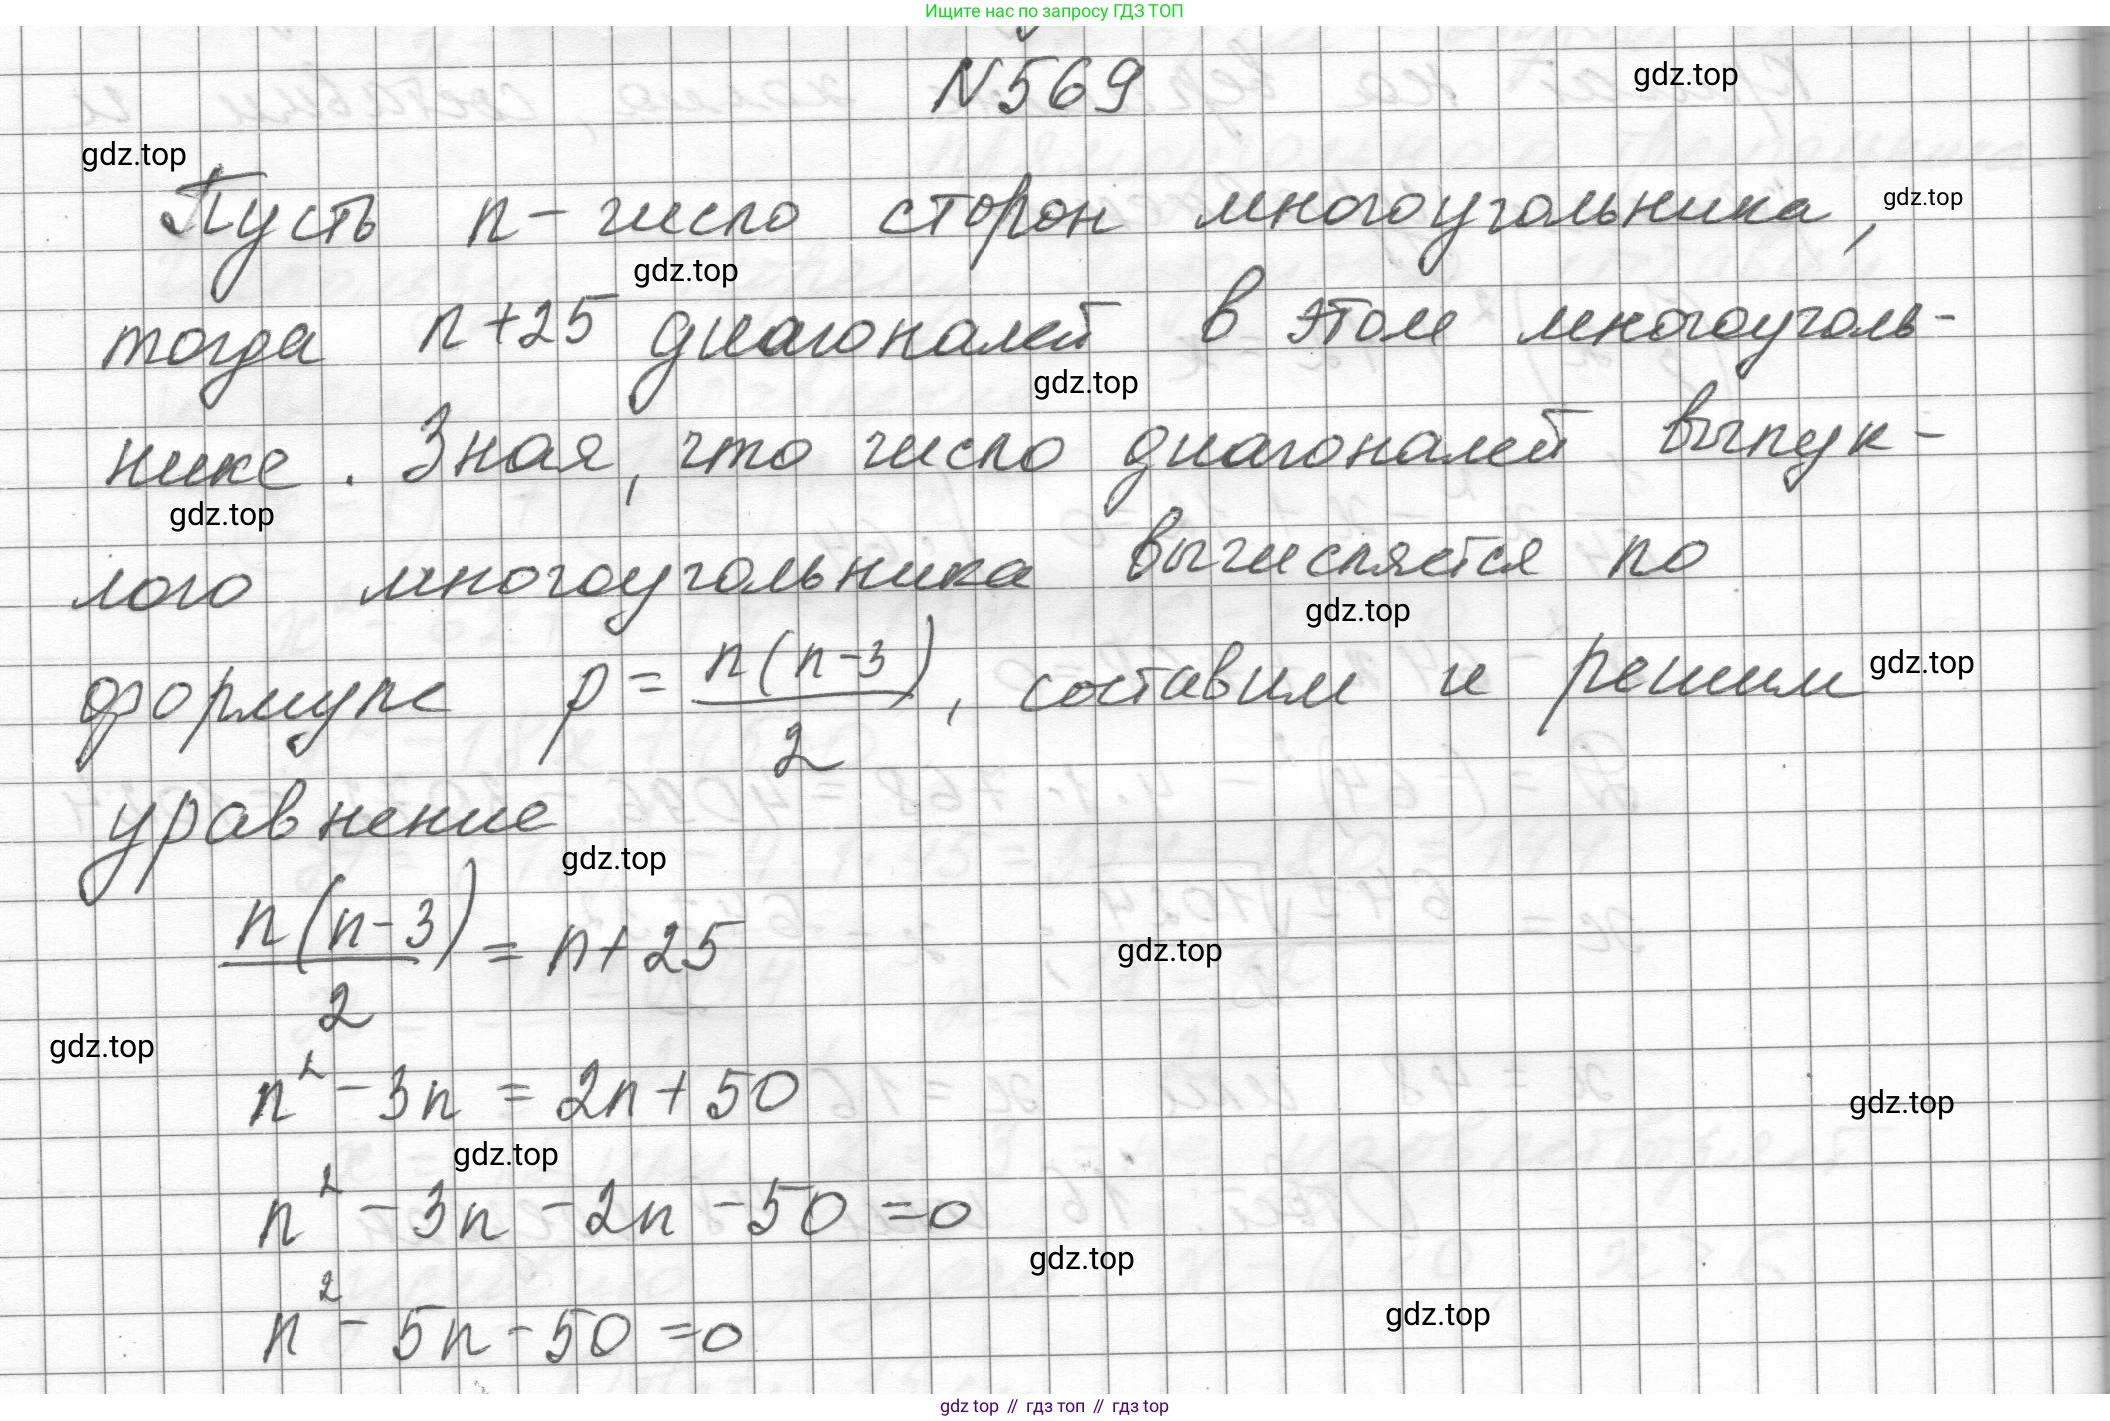 Ищите нас по запросу ГДЗ ТОП
N569
gdz.top
gdz.top
Пусть n - число сторон многоугольника,
gdz.top
gdz.top
тогда n+25 диагоналей в этом многоуголь-
gdz.top
нике. Зная, что число диагоналей выпук-
gdz.top
лого многоугольника вычисляется по
gdz.top
формуле p = n(n-3)/2, составим и решим
gdz.top
уравнение
gdz.top
n(n-3)/2 = n+25
gdz.top
gdz.top
n² - 3n = 2n + 50
gdz.top
gdz.top
n² - 3n - 2n - 50 = 0
gdz.top
gdz.top
n² - 5n - 50 = 0
gdz top // гдз топ // гдз top